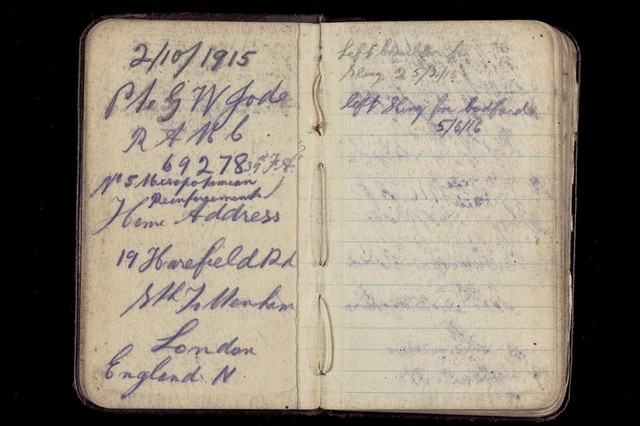 2/10/1915
Pte G W Jode
R A M C
69278 39 F.A.
No 5 Mesopotamian
Reinforgements
Home Address
19 Harefield Rd
Sth Tottenham
London
England N
left
25/3/16
left for
5/6/16